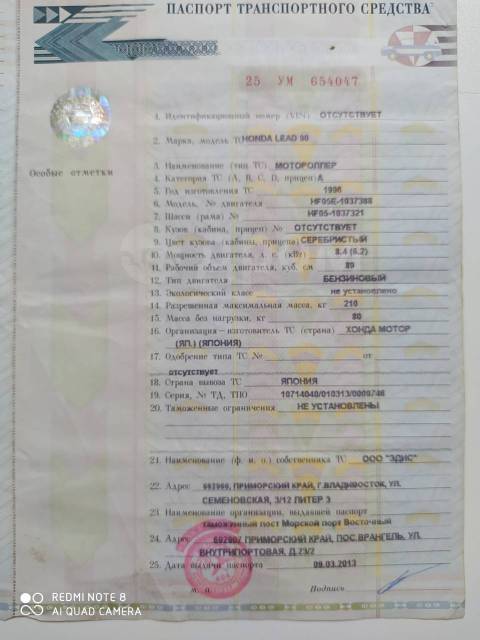 ПАСПОРТ ТРАНСПОРТНОГО СРЕДСТВА
25 УМ 654047
Особые отметки
1. Идентификационный номер (VIN) ОТСУТСТВУЕТ
2. Марка, модель Т(HONDA LEAD 90
3. Наименование (тип ТС) МОТОРОЛЛЕР
4. Категория ТС (А, В, С, D, прицеп) А
5. Год изготовления ТС 1996
6. Модель, № двигателя HF05E-1037388
7. Шасси (рама) № HF05-1037321
8. Кузов (кабина, прицеп) № ОТСУТСТВУЕТ
9. Цвет кузова (кабины, прицепа) СЕРЕБРИСТЫЙ
10. Мощность двигателя, л. с. (кВт) 8.4 (6.2)
11. Рабочий объем двигателя, куб. см 89
12. Тип двигателя БЕНЗИНОВЫЙ
13. Экологический класс не установлено
14. Разрешенная максимальная масса, кг 210
15. Масса без нагрузки, кг 80
16. Организация–изготовитель ТС (страна) ХОНДА МОТОР
(ЯП.) (ЯПОНИЯ)
17. Одобрение типа ТС № от
отсутствует
18. Страна вывоза ТС ЯПОНИЯ
19. Серия, № ТД, ТПО 10714040/010313/0009746
20. Таможенные ограничения НЕ УСТАНОВЛЕНЫ
21. Наименование (ф. и. о.) собственника ТС ООО "ЭДИС"
22. Адрес ПРИМОРСКИЙ КРАЙ, Г.ВЛАДИВОСТОК, УЛ.
СЕМЕНОВСКАЯ, 3/12 ЛИТЕР 3
23. Наименование организации, выдавшей паспорт
таможенный пост Морской порт Восточный
24. Адрес 692907 ПРИМОРСКИЙ КРАЙ, ПОС.ВРАНГЕЛЬ, УЛ.
ВНУТРИПОРТОВАЯ, Д.23/2
25. Дата выдачи паспорта 09.03.2013
м. п. Подпись
REDMI NOTE 8
AI QUAD CAMERA